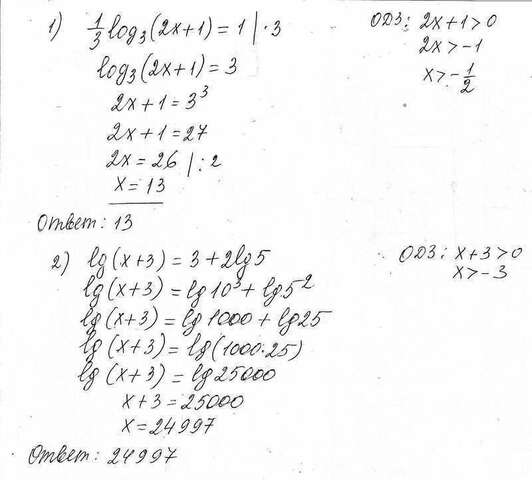 1) 1/3 log₃(2x+1) = 1 | · 3
ОДЗ: 2x+1>0
2x>-1
x>-1/2
log₃(2x+1) = 3
2x+1 = 3³
2x+1 = 27
2x = 26 | : 2
x = 13
Ответ: 13
2) lg(x+3) = 3 + 2lg5
ОДЗ: x+3>0
x>-3
lg(x+3) = lg10³ + lg5²
lg(x+3) = lg1000 + lg25
lg(x+3) = lg(1000·25)
lg(x+3) = lg25000
x+3 = 25000
x = 24997
Ответ: 24997